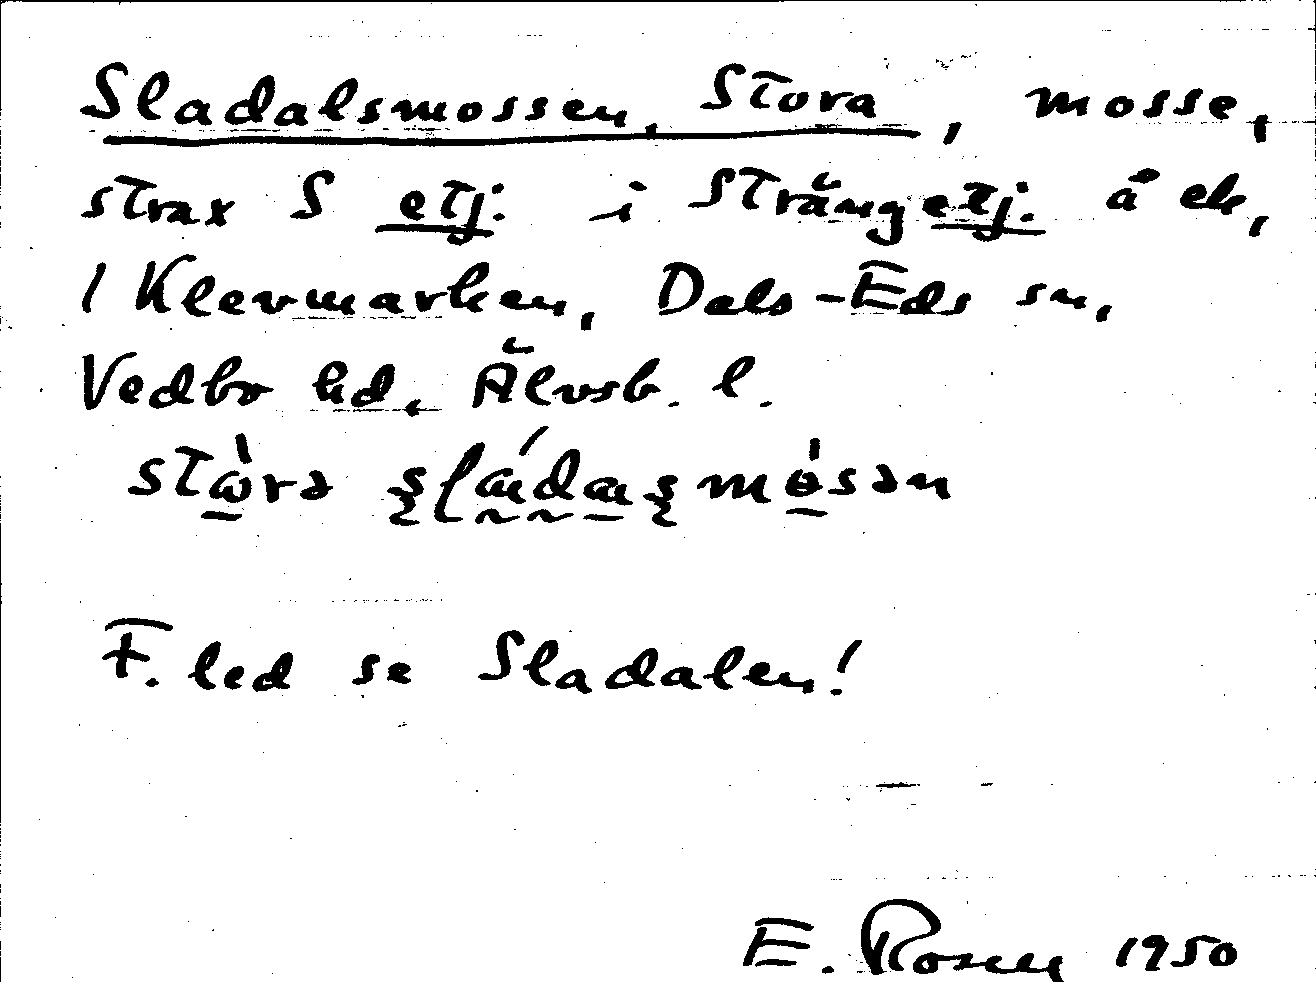 Sladalsmossen, Stora, mosse,
strax S etj. i Strängetj. å ek,
1 Klevmarken, Dals-Eds sn,
Vedbo hd, Älvsb. l.
F. led se Sladalen!
E. Rosen 1950